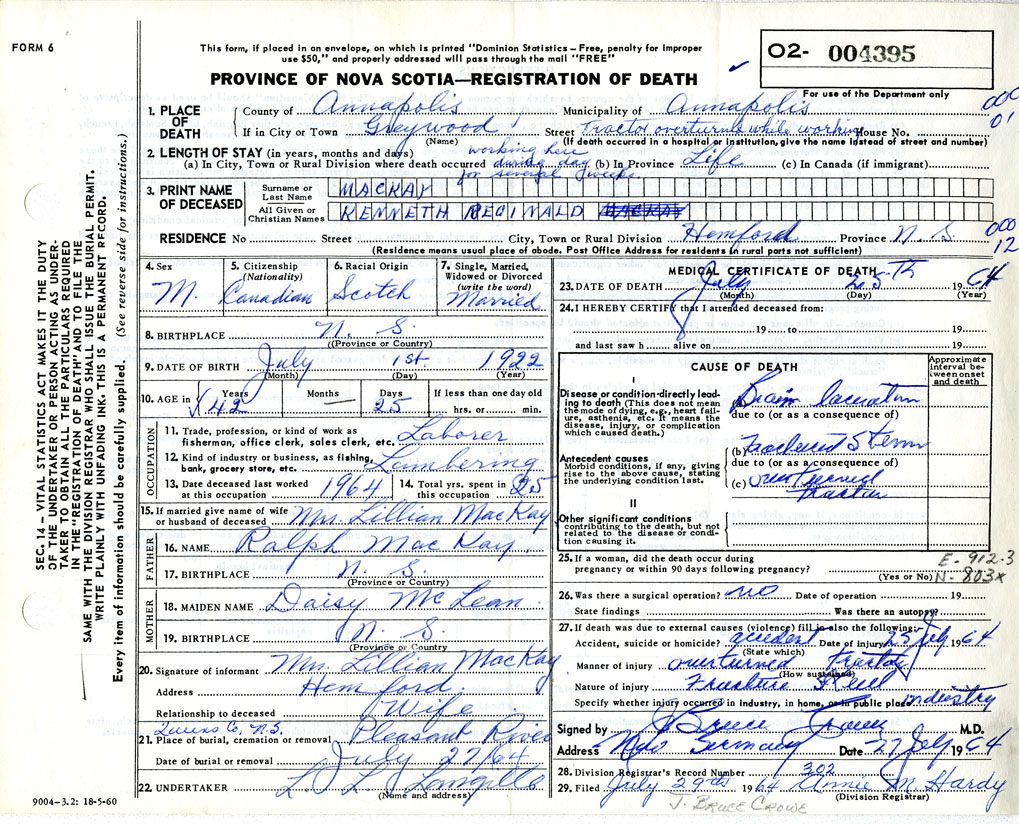 FORM 6
This form, if placed in an envelope, on which is printed "Dominion Statistics – Free, penalty for improper
use $50," and properly addressed will pass through the mail "FREE"
O2- 004395
For use of the Department only
PROVINCE OF NOVA SCOTIA—REGISTRATION OF DEATH
1. PLACE OF DEATH County of Annapolis Municipality of Annapolis
If in City or Town Greywood Street Tractor overturns while working House No.
(Name) (If death occurred in a hospital or institution, give the name instead of street and number)
000
01
2. LENGTH OF STAY (in years, months and days) working here
(a) In City, Town or Rural Division where death occurred during day (b) In Province Life (c) In Canada (if immigrant)
for several weeks
3. PRINT NAME OF DECEASED Surname or Last Name MACKAY
All Given or Christian Names KENNETH REGINALD MACKAY
RESIDENCE No Street City, Town or Rural Division Hemford Province N. S.
(Residence means usual place of abode. Post Office Address for residents in rural parts not sufficient)
000
12
4. Sex M.
5. Citizenship (Nationality) Canadian
6. Racial Origin Scotch
7. Single, Married, Widowed or Divorced (write the word) Married
8. BIRTHPLACE N. S.
(Province or Country)
9. DATE OF BIRTH July 1st. 1922
(Month) (Day) (Year)
10. AGE in Years 42 Months — Days 25 If less than one day old hrs. or min.
OCCUPATION
11. Trade, profession, or kind of work as fisherman, office clerk, sales clerk, etc. Laborer
12. Kind of industry or business, as fishing, bank, grocery store, etc. Lumbering
13. Date deceased last worked at this occupation 1964 14. Total yrs. spent in this occupation 25
15. If married give name of wife or husband of deceased Mrs. Lillian MacKay
FATHER
16. NAME Ralph MacKay
17. BIRTHPLACE N. S.
(Province or Country)
MOTHER
18. MAIDEN NAME Daisy McLean
19. BIRTHPLACE N. S.
(Province or Country)
20. Signature of informant Mrs. Lillian MacKay
Address Hemford
Relationship to deceased Wife
Queens Co, N.S.
21. Place of burial, cremation or removal Pleasant River
Date of burial or removal July 27/64
22. UNDERTAKER L. L. Langille
(Name and address)
MEDICAL CERTIFICATE OF DEATH
23. DATE OF DEATH July 25th 1964
(Month) (Day) (Year)
24. I HEREBY CERTIFY that I attended deceased from:
19 to 19
and last saw h alive on 19
CAUSE OF DEATH
Approximate interval between onset and death
I
Disease or condition directly leading to death (This does not mean the mode of dying, e.g., heart failure, asthenia, etc. It means the disease, injury, or complication which caused death.)
(a) Brain laceration
due to (or as a consequence of)
Antecedent causes
Morbid conditions, if any, giving rise to the above cause, stating the underlying condition last.
(b) Fractured
due to (or as a consequence of)
(c) overturned tractor
II
Other significant conditions contributing to the death, but not related to the disease or condition causing it.
25. If a woman, did the death occur during
pregnancy or within 90 days following pregnancy?
(Yes or No)
E- 912.3
N- 803x
26. Was there a surgical operation? no Date of operation 19
State findings Was there an autopsy?
27. If death was due to external causes (violence) fill in also the following:—
Accident, suicide or homicide? accident Date of injury 25 July 1964
(State which)
Manner of injury overturned tractor
(How sustained)
Nature of injury Fracture Skull
Specify whether injury occurred in industry, in home, or in public place industry
Signed by J Bruce Crowe M.D.
Address Date 27 July 1964
28. Division Registrar's Record Number 302
29. Filed July 29th 1964 Annie M Hardy
(Division Registrar)
J. BRUCE CROWE
SEC. 14 – VITAL STATISTICS ACT MAKES IT THE DUTY
OF THE UNDERTAKER OR PERSON ACTING AS UNDER-
TAKER TO OBTAIN ALL THE PARTICULARS REQUIRED
IN THE "REGISTRATION OF DEATH" AND TO FILE THE
SAME WITH THE DIVISION REGISTRAR WHO SHALL ISSUE THE BURIAL PERMIT.
WRITE PLAINLY WITH UNFADING INK. THIS IS A PERMANENT RECORD.
Every item of information should be carefully supplied. (See reverse side for instructions.)
9004–3.2: 18-5-60